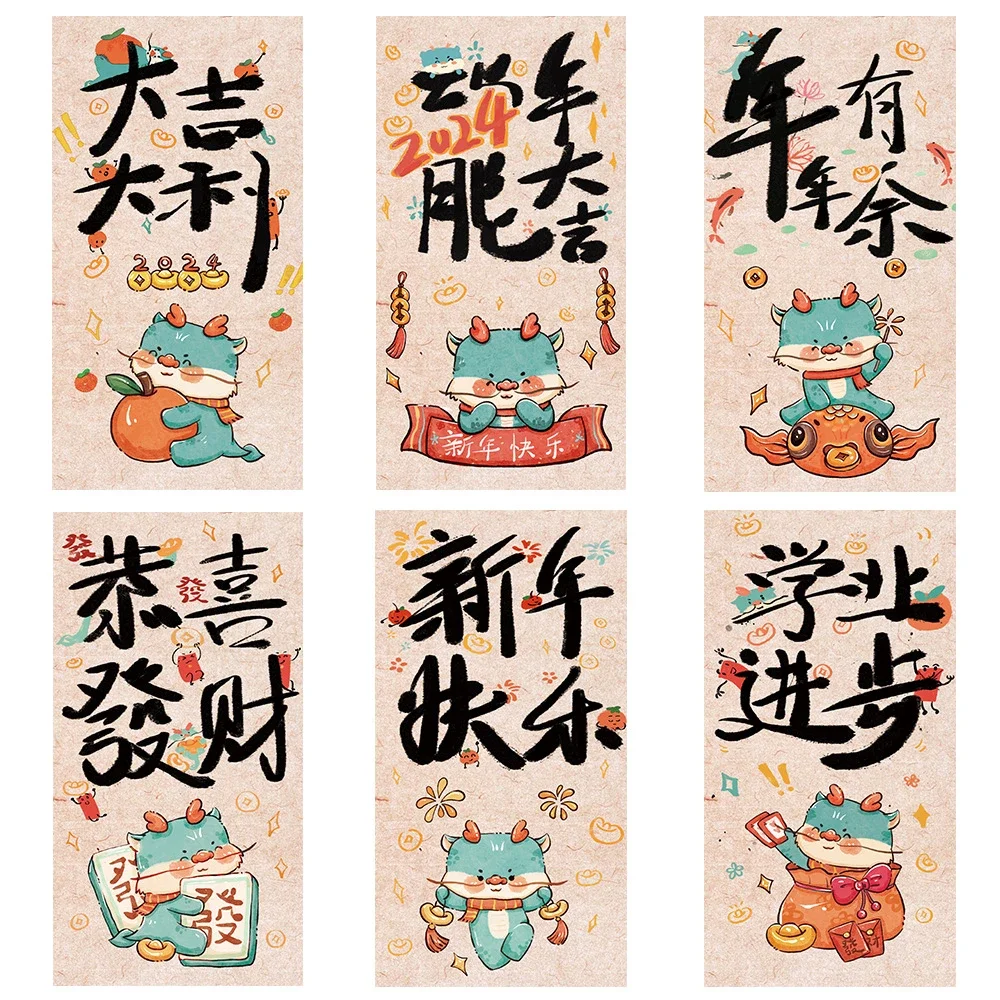 大吉
大利
2024
龍年
2024
大吉
新年快乐
年有
年余
發
恭喜
發
發财
發
發
新年
快乐
学业
进步
發
财